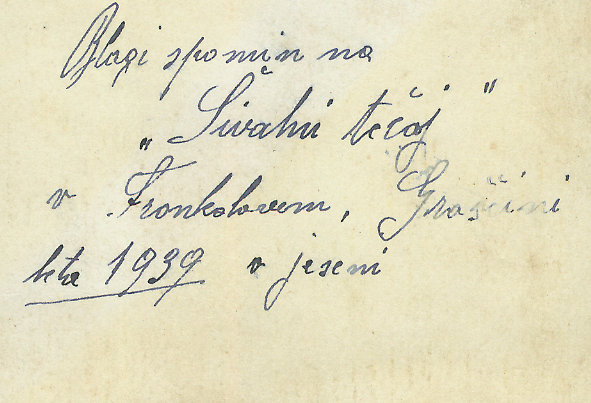 Blagi spomin na
„Šivalni tečaj"
v Frankolovem, Graščini
leta 1939 v jeseni